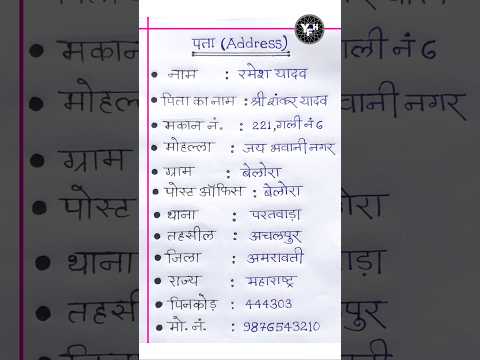 पता (Address)
• नाम : रमेश यादव
• पिता का नाम : श्री शंकर यादव
• मकान नं. : 221, गली नं 6
• मोहल्ला : जय भवानी नगर
• ग्राम : बेलोरा
• पोस्ट ऑफिस : बेलोरा
• थाना : परतवाड़ा
• तहसील : अचलपुर
• जिला : अमरावती
• राज्य : महाराष्ट्र
• पिनकोड़ : 444303
• मो. नं. : 9876543210